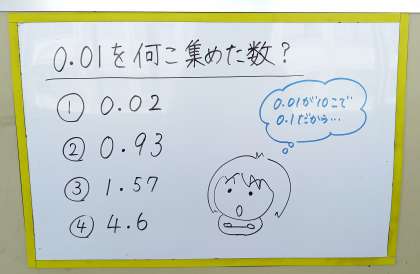 0.01を何こ集めた数?
① 0.02
② 0.93
③ 1.57
④ 4.6
0.01が10こで
0.1だから…